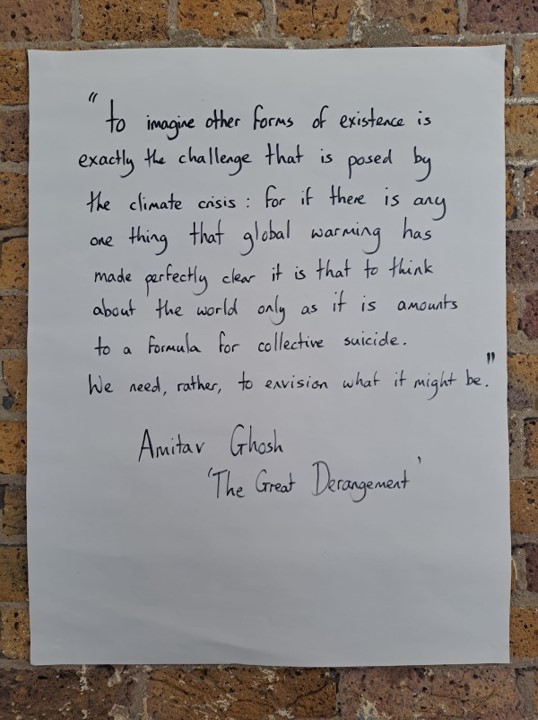 "to imagine other forms of existence is
exactly the challenge that is posed by
the climate crisis : for if there is any
one thing that global warming has
made perfectly clear it is that to think
about the world only as it is amounts
to a formula for collective suicide.
We need, rather, to envision what it might be."
Amitav Ghosh
'The Great Derangement'